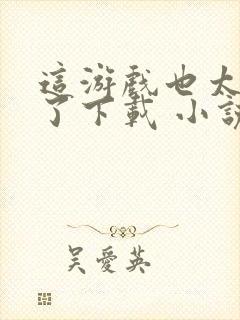 這游戲也太
了下載 小說
吳愛英